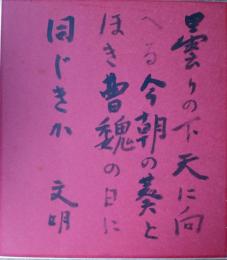 曇りの下天に向
へる今朝の葵と
ほき曹魏の日に
同じきか 文明